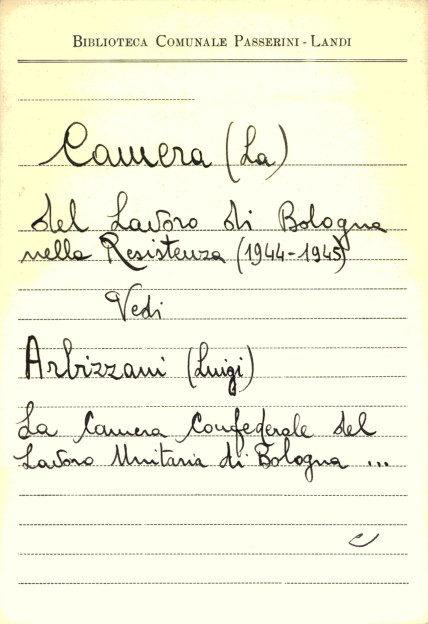 BIBLIOTECA COMUNALE PASSERINI - LANDI
Camera (La)
del Lavoro di Bologna
nella Resistenza (1944-1945)
Vedi
Arbizzani (Luigi)
La Camera Confederale del
Lavoro Unitaria di Bologna ...